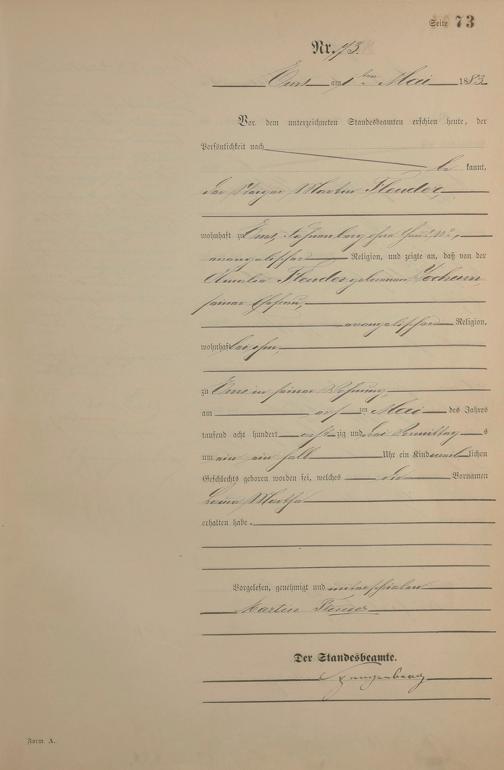 Seite 73
Nr. 73.
Ems, am ten Mai 1883
Vor dem unterzeichneten Standesbeamten erschien heute, der
Persönlichkeit nach
be kannt,
der Steiger Martin Fleuder,
wohnhaft zu Ems,
evangelischer Religion, und zeigte an, daß von der
Amalia Fleuder geborenen
seiner Ehefrau,
evangelischer Religion,
wohnhaft bei ihm,
zu Ems in seiner Wohnung,
am im Mai des Jahres
tausend acht hundert achtzig und drei Vormittag s
um ein ein halb Uhr ein Kind lichen
Geschlechts geboren worden sei, welches Vornamen
Martha
erhalten habe.
Vorgelesen, genehmigt und unterschrieben
Martin
Der Standesbeamte.
Form. A.